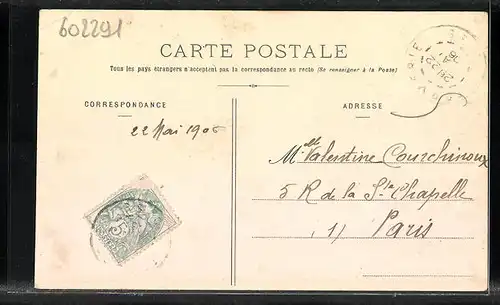 602291
CARTE POSTALE
Tous les pays étrangers n'acceptent pas la correspondance au recto (Se renseigner à la Poste)
CORRESPONDANCE
ADRESSE
22 Mai 1906
Mlle Valentine Courchinoux
5 R de la Ste Chapelle
Paris
5